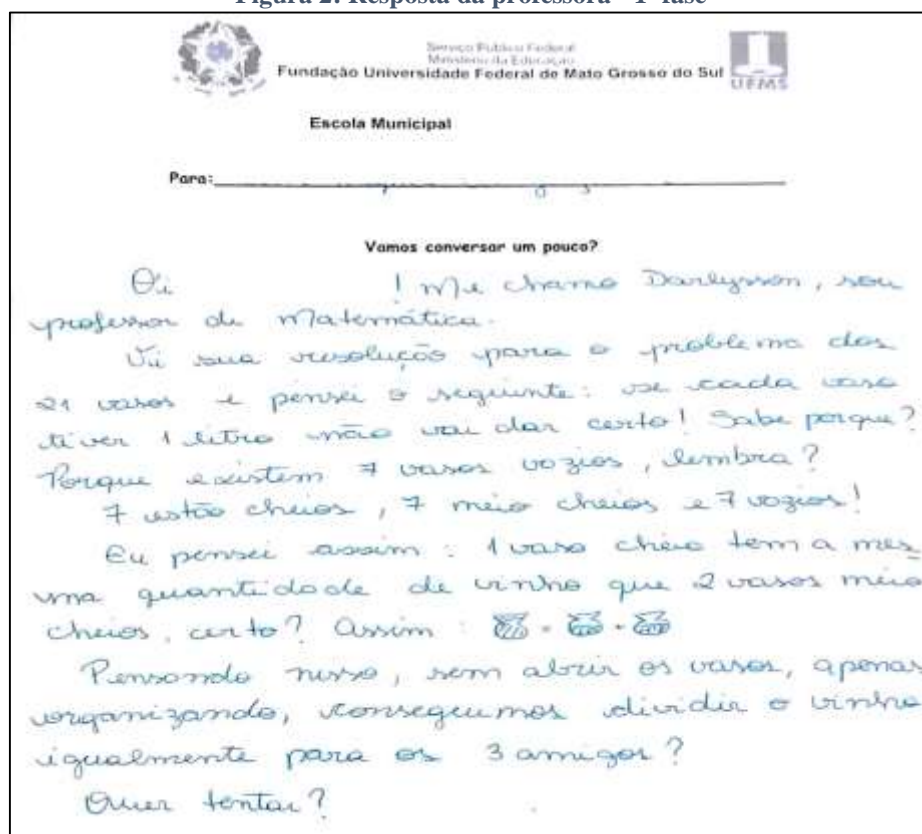 Figura 2: Resposta da professora - 1ª fase
Serviço Público Federal
Ministério da Educação
Fundação Universidade Federal de Mato Grosso do Sul
UFMS
Escola Municipal
Para:
Vamos conversar um pouco?
Oi ! Me chamo Darlysson, sou
professor de Matemática.
Vi sua resolução para o problema dos
21 vasos e pensei o seguinte: se cada vaso
tiver 1 litro não vai dar certo! Sabe porque?
Porque existem 7 vasos vazios, lembra?
7 estão cheios, 7 meio cheios e 7 vazios!
Eu pensei assim: 1 vaso cheio tem a mes
ma quantidade de vinho que 2 vasos meio
cheios, certo? Assim:
Pensando nisso, sem abrir os vasos, apenas
organizando, conseguimos dividir o vinho
igualmente para os 3 amigos?
Quer tentar?